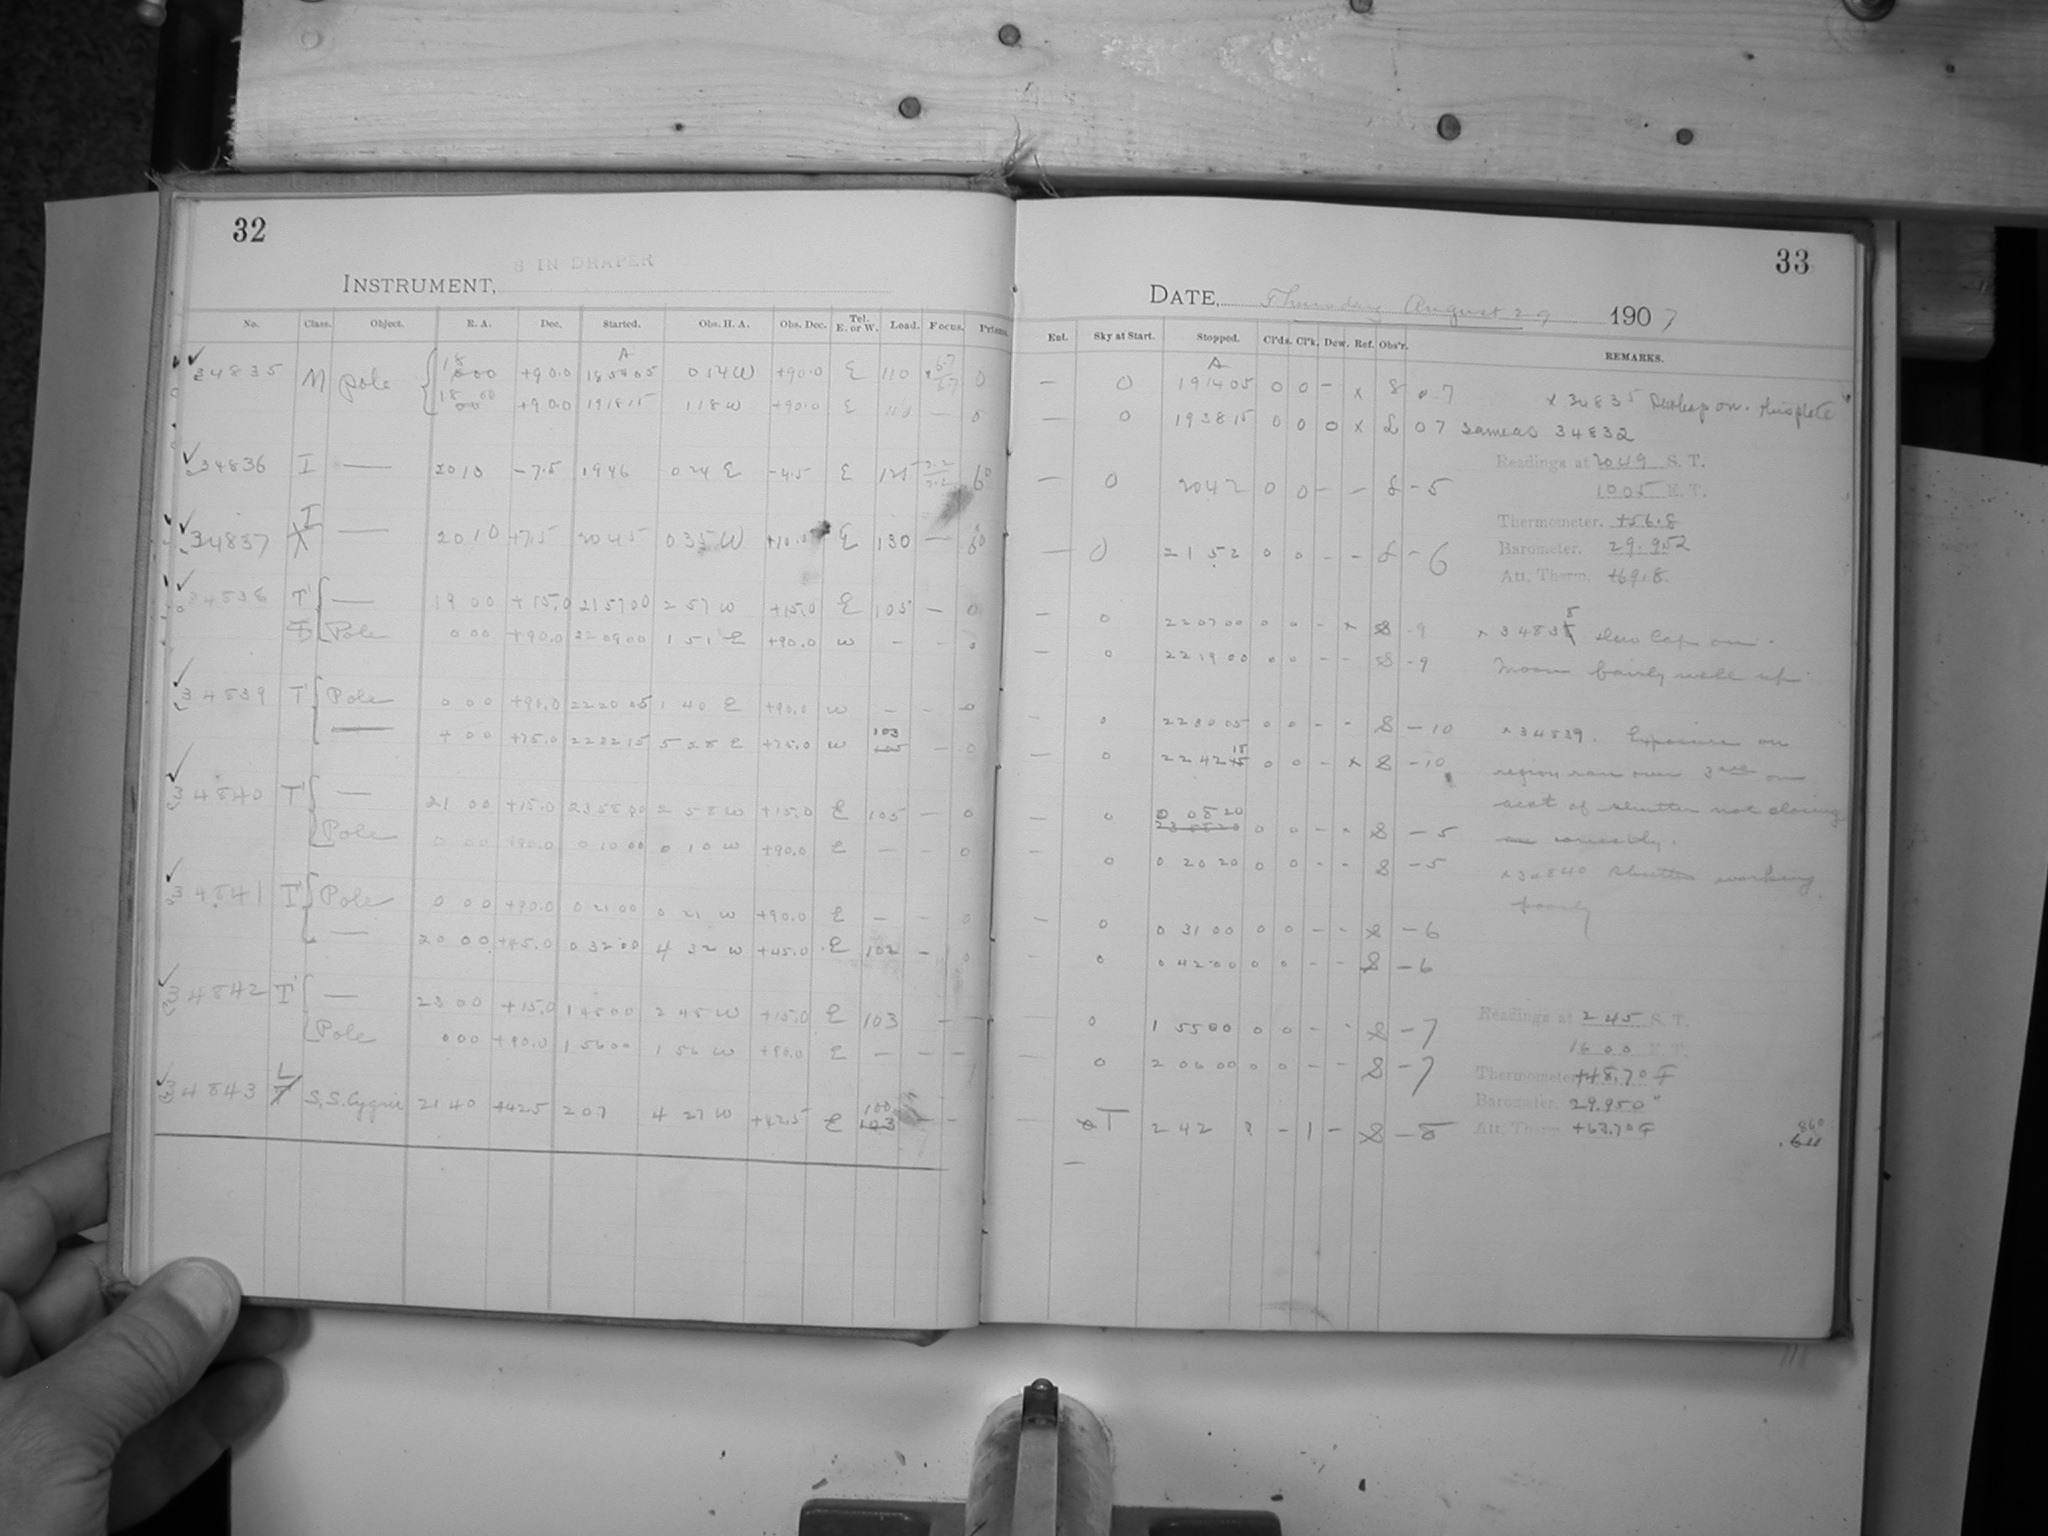 32
8 IN DRAPER
INSTRUMENT,
No. Class. Object. R. A. Dec. Started. Obs. H. A. Obs. Dec. Tel. E. or W. Load. Focus. Prisms.
34835 M Pole 18 00 +90.0 18 54 05 0 14 W +90.0 E 110 6.7 0
18 00 +90.0 19 18 15 1 18 W +90.0 E 110 — 0
34836 I — 20 10 -7.5 19 46 0 24 E -4.5 E 125 60
34837 I — 20 10 +7.5 20 45 0 35 W +10.0 E 130 — 60
34838 T' — 19 00 +15.0 21 57 00 2 57 W +15.0 E 105 — 0
Pole 0 00 +90.0 22 09 00 1 51 E +90.0 W — - 0
34839 T' Pole 0 00 +90.0 22 20 05 1 40 E +90.0 W — - 0
— 4 00 +75.0 22 32 15 5 28 E +75.0 W 103 - 0
34840 T' — 21 00 +15.0 23 58 00 2 58 W +15.0 E 105 — 0
Pole 0 00 +90.0 0 10 00 0 10 W +90.0 E — — 0
34841 T' Pole 0 00 +90.0 0 21 00 0 21 W +90.0 E — - 0
— 20 00 +45.0 0 32 00 4 32 W +45.0 E 102 - 0
34842 T' — 23 00 +15.0 1 45 00 2 45 W +15.0 E 103 — —
Pole 0 00 +90.0 1 56 00 1 56 W +90.0 E — — —
34843 L S.S. Cygni 21 40 +42.5 2 07 4 27 W +42.5 E 100 — —
33
DATE, Thursday August 29 1907
Ent. Sky at Start. Stopped. Cl'ds. Cl'k. Dew. Ref. Obs'r. REMARKS.
— 0 19 14 05 0 0 - x S 0.7 x 34835 Dewcap on. this plate
— 0 19 38 15 0 0 0 x S 07 same as 34832
Readings at 2049 S. T.
— 0 20 42 0 0 - - S -5 1005 E. T.
Thermometer. +56.8
— 0 21 52 0 0 - - S -6 Barometer. 29.952
Att. Therm. +69.8
— 0 22 07 00 0 0 - x S -9 x 34838 Dew Cap on.
— 0 22 19 00 0 0 - - S -9 Moon fairly well up.
— 0 22 30 05 0 0 - - S -10 x 34839. Exposure on
— 0 22 42 15 0 0 - x S -10 region ran over 3 on
— 0 0 08 20 0 0 - x S -5 acct of shutter not closing
correctly.
0 0 20 20 0 0 - - S -5 x 34840 Shutter working
poorly
— 0 0 31 00 0 0 - - S -6
— 0 0 42 00 0 0 - - S -6
Readings at 2 45 S. T.
— 0 1 55 00 0 0 - - S -7 16 00 E. T.
— 0 2 06 00 0 0 - - S -7 Thermometer +48.7° F
Barometer. 29.950"
— T 2 42 ? - 1 - S -8 Att. Therm +63.7° F
860